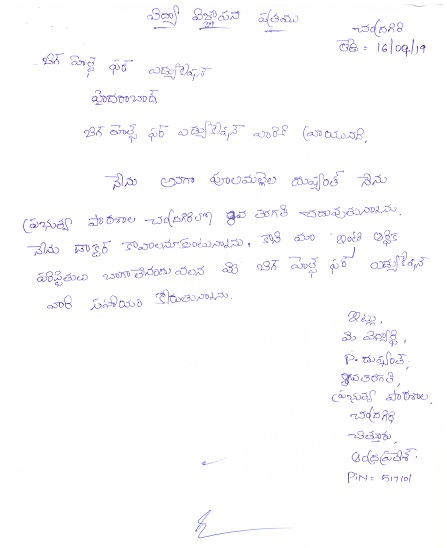 విద్యా విజ్ఞాపన పత్రము
చంద్రగిరి
తేది : 16/09/19
బిగ్ హెల్ప్ ఫర్ ఎడ్యుకేషన్
హైదరాబాద్
బిగ్ హెల్ప్ ఫర్ ఎడ్యుకేషన్ వారికి వ్రాయునది,
నేను అనగా పూలమల్లెల దుష్యంత్ నేను
ప్రభుత్వ పాఠశాల చంద్రగిరిలో తరగతి చదువుతున్నాను.
నేను డాక్టర్ కావాలనుకుంటున్నాను, కాని మా ఇంటి ఆర్థిక
పరిస్థితులు బాగాలేనందు వలన మీ బిగ్ హెల్ప్ ఫర్ ఎడ్యుకేషన్
వారి సహాయం కోరుతున్నాను.
ఇట్లు,
మీ విద్యార్థి,
P. దుష్యంత్,
తరగతి,
ప్రభుత్వ పాఠశాల,
చంద్రగిరి
చిత్తూరు,
ఆంధ్రప్రదేశ్.
PiN = 517101